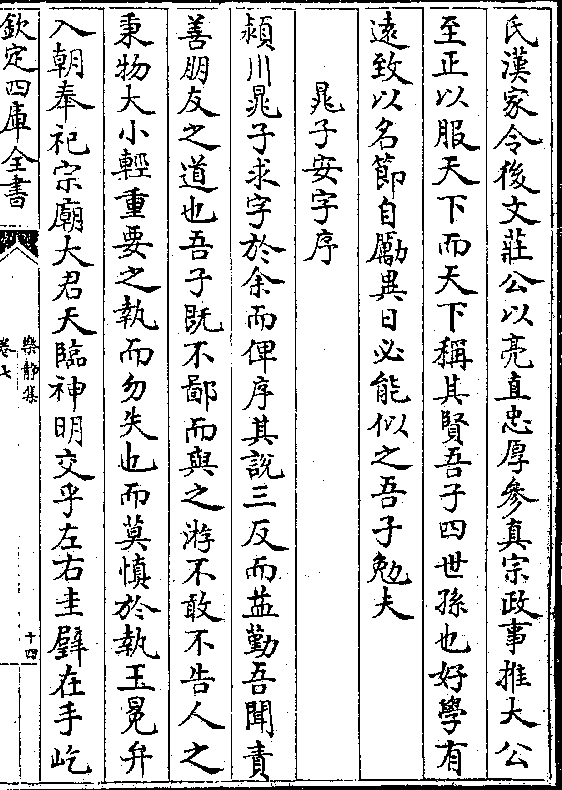 氏漢家令後文莊公以亮直忠厚參真宗政事推大公
至正以服天下而天下稱其賢吾子四世孫也好學有
遠致以名節自勵異日必能似之吾子勉夫
晁子安字序
潁川晁子求字於余而俾序其說三反而益勤吾聞責
善朋友之道也吾子既不鄙而與之游不敢不告人之
秉物大小輕重要之執而勿失也而莫慎於執玉冕弁
入朝奉祀宗廟大君天臨神明交乎左右圭璧在手屹
欽定四庫全書
樂静集
卷七
十四